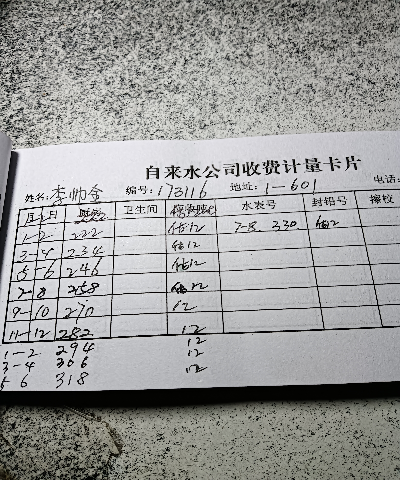 自来水公司收费计量卡片
姓名: 李帅金 编号: 173116 地址: 1-601 电话:
月 日 卫生间 水表号 封铅号 操校
1-2 222 估12 7-8 330
3-4 234 估12
5-6 246 估12
7-8 258 估12
9-10 270 12
11-12 282 12
1-2 294 12
3-4 306 12
5 6 318 12